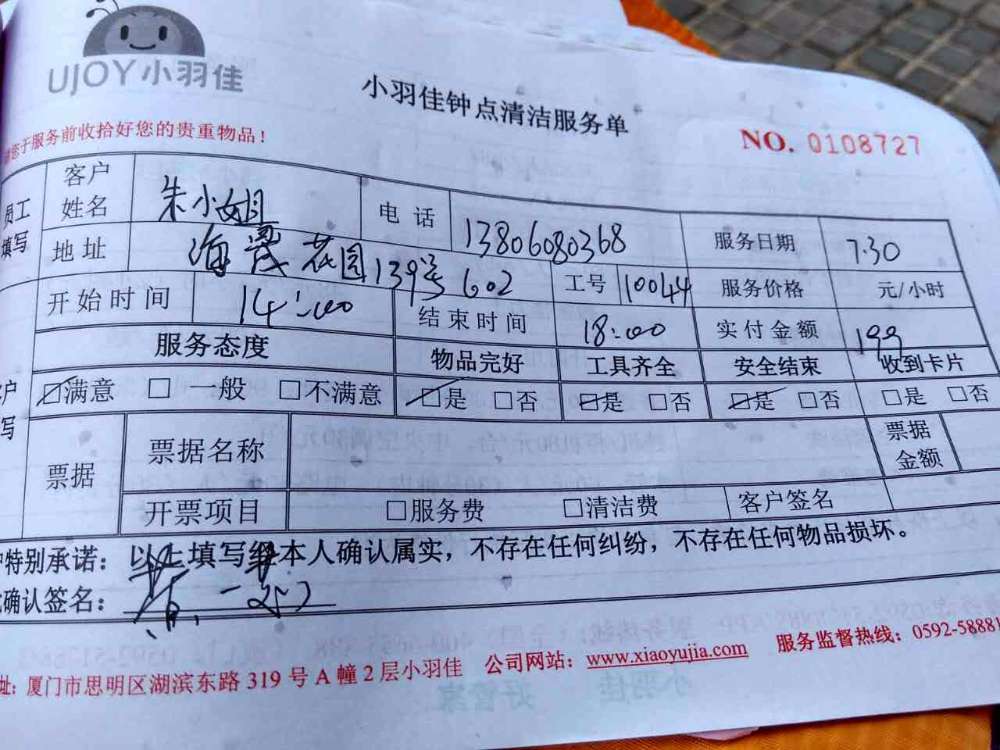 UJOY小羽佳
小羽佳钟点清洁服务单
于服务前收拾好您的贵重物品！
NO. 0108727
员工填写
客户姓名 朱小姐 电话 13806080368 服务日期 7.30
地址 海 花园139号602 工号 10044 服务价格 元/小时
开始时间 14:00 结束时间 18:00 实付金额 199
服务态度 物品完好 工具齐全 安全结束 收到卡片
户写
☑满意 □一般 □不满意 ☑是 □否 ☑是 □否 ☑是 □否 □是 □否
票据 票据名称 票据金额
开票项目 □服务费 □清洁费 客户签名
特别承诺：以上填写经本人确认属实，不存在任何纠纷，不存在任何物品损坏。
确认签名：
址：厦门市思明区湖滨东路319号A幢2层小羽佳 公司网站：www.xiaoyujia.com 服务监督热线：0592-58881